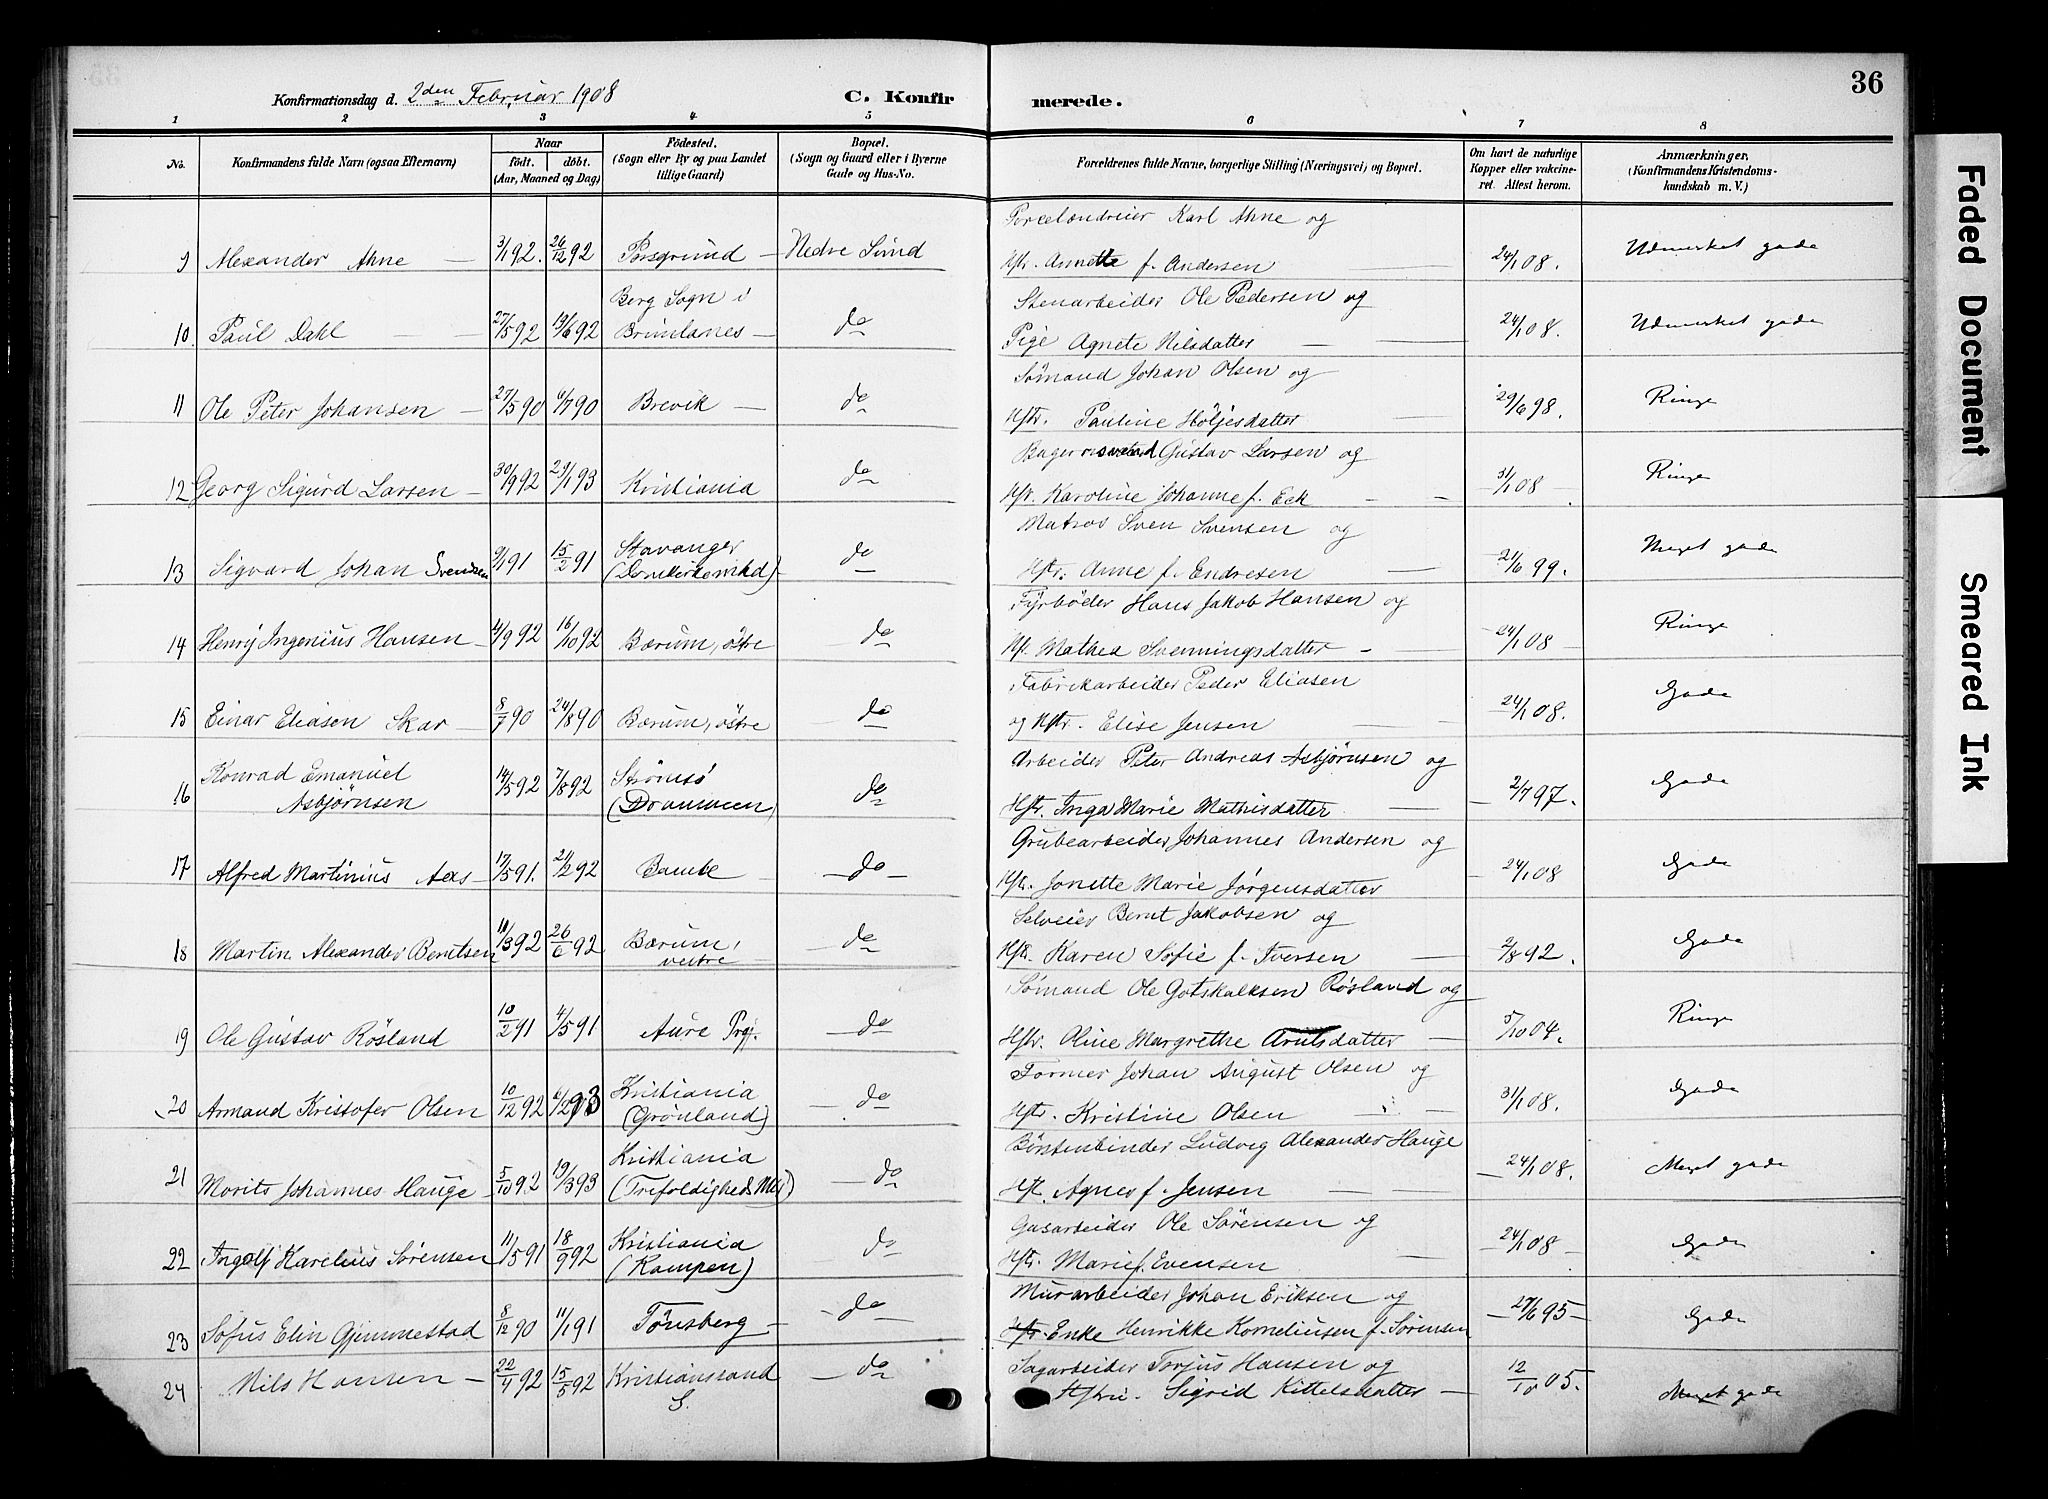 36
Konfirmationsdag d. 2den Februar 1908 C. Konfirmerede.
1 2 3 4 5 6 7 8
No. Konfirmandens fulde Navn (ogsaa Efternavn) Naar født. døbt. (Aar, Maaned og Dag) Fødested. (Sogn eller By og paa Landet tillige Gaard) Bopæl. (Sogn og Gaard eller i Byerne Gade og Hus-No. Forældrenes fulde Navne, borgerlige Stilling (Næringsvei) og Bopæl. Om havt de naturlige Kopper eller vakcineret. Attest herom. Anmærkninger, (Konfirmandens Kristendomskundskab m. V.)
Porcelændreier Karl Ahne og
9 Alexander Ahne 3/1 92. 26/12 92 Porsgrund Nedre Sund Hstr. Annette f. Andersen 24/1 08. Udmerket gode
Berg Sogn i Stenarbeider Ole Pedersen og
10. Paul Dahl 27/5 92 19/6 92 Brunlanes do Pige Agnete Nilsdatter 24/1 08. Udmerket gode
Sømand Johan Olsen og
11 Ole Peter Johansen 27/5 90 6/7 90 Brevik do Hstr. Pauline Høljesdatter 29/6 98. Ringe
Bagersvend Gustav Larsen og
12 Georg Sigurd Larsen 30/9 92 29/1 93 Kristiania do Hstr. Karoline Johanne f. Eck 31/1 08 Ringe
Stavanger Matros Sven Svensen og
13 Sigvard Johan Svendsen 9/1 91 15/2 91 (Domkirkemhd) do Hstr. Anne f. Endresen 21/6 99. Meget gode
Fyrbøder Hans Jakob Hansen og
14 Henry Ingenius Hansen 4/9 92 16/10 92 Bærum, østre do Hst. Mathea Svenningsdatter 24/1 08 Ringe
Fabrikarbeider Peder Eliasen
15 Einar Eliasen Skar 8/7 90 24/8 90 Bærum, østre do og Hstr. Elise Jensen 24/1 08. Gode
Konrad Emanuel Strømsø Arbeider Peter Andreas Asbjørnsen og
16 Asbjørnsen 14/5 92 7/8 92 (Drammen) do Hstr. Inga Marie Mathisdatter 2/7 97. Gode
Grubearbeider Johannes Andersen og
17 Alfred Martinius Aas 17/5 91. 21/2 92 Bamle do Hstr. Jonette Marie Jørgensdatter 24/1 08 Gode
Selveier Bernt Jakobsen og
18 Martin Alexander Berntsen 11/3 92 26/6 92 Bærum, vestre do Hstr. Karen Sofie f. Iversen 2/8 92. Gode
Sømand Ole Gotskalksen Røsland og
19 Ole Gustav Røsland 10/2 91 4/5 91 Aure Prgj. do Hstr. Oline Margrethe Arntsdatter 5/10 04. Ringe
Kristiania Former Johan August Olsen og
20 Armand Kristofer Olsen 10/12 92 6/2 93 (Grønland) do Hstr. Kristine Olsen 31/1 08. Gode
Kristiania Børstenbinder Ludvig Alexander Hauge
21 Morits Johannes Hauge 5/10 92 19/3 93 (Trefoldigheds Mgj) do Hst. Agnes f. Jensen 24/1 08. Meget gode
Kristiania Gasarbeider Ole Sørensen og
22 Ingolf Karelius Sørensen 11/5 91 18/9 92 (Kampen) do Hstr. Marie f. Evensen 24/1 08 Gode
Murarbeider Johan Eriksen og
23 Sofus Elin Gjemmestad 8/12 90 11/1 91 Tønsberg do Hstr. Enke Henrikke Korneliusen f. Sørensen 27/6 95 Gode
Sagarbeider Torjus Hansen og
24 Nils Hansen 22/4 92 15/5 92 Kristianssand S. do Hstru. Sigrid Kittelsdatter 12/10 05. Meget gode
Faded Document
Smeared Ink